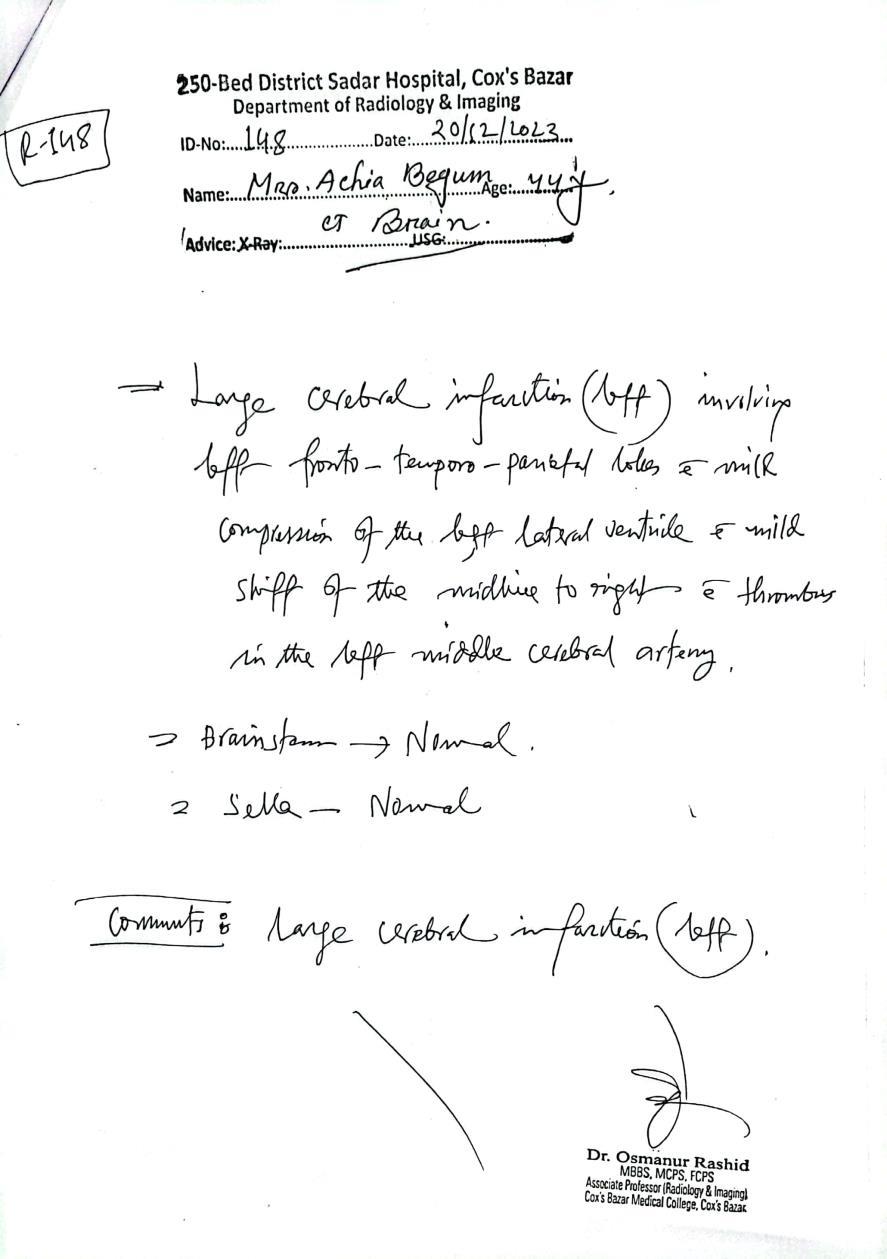 250-Bed District Sadar Hospital, Cox's Bazar
Department of Radiology & Imaging
R-148
ID-No:....148....................Date:....20/12/2023...
Name:....Mrs. Achia Begum Age:....44y.
CT Brain.
Advice: X-Ray:............................USG:............................
⇒ Large cerebral infarction (left) involving
left fronto-temporo-parietal lobes c̄ mild
compression of the left lateral ventricle c̄ mild
shift of the midline to right c̄ thrombus
in the left middle cerebral artery.
⇒ Brainstem → Normal.
⇒ Sella — Normal
Comments: Large cerebral infarction (left).
Dr. Osmanur Rashid
MBBS, MCPS, FCPS
Associate Professor (Radiology & Imaging)
Cox's Bazar Medical College, Cox's Bazar.